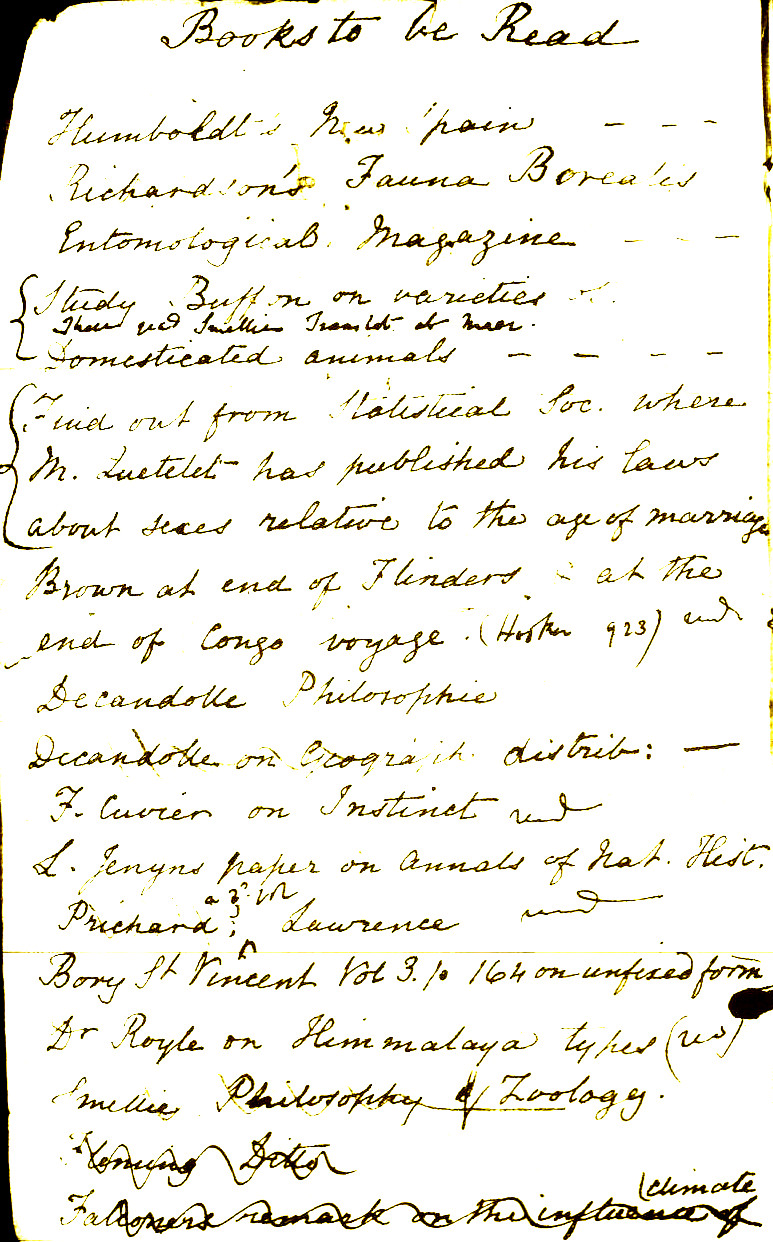 Books to be Read
Humboldt's New Spain - - -
Richardson's Fauna Borealis
Entomological Magazine - - -
Study Buffon on varieties of
Smellie Translat at Maer.
Domesticated animals - - - -
Find out from Statistical Soc. where
M. Quetelet has published his laws
about sexes relative to the age of marriage
Brown at end of Flinders & at the
end of Congo voyage. (Hooker 923) read
Decandolle Philosophie
Decandolle on Geograph. distrib: —
F. Cuvier on Instinct read
L. Jenyns paper on Annals of Nat. Hist.
a 3d vol
Prichard; Lawrence read
Bory St Vincent Vol 3. p 164 on unfixed form
Dr Royle on Himmalaya types (read)
Smellie Philosophy of Zoology.
Fleming Ditto
climate
Falconers remark on the influence of